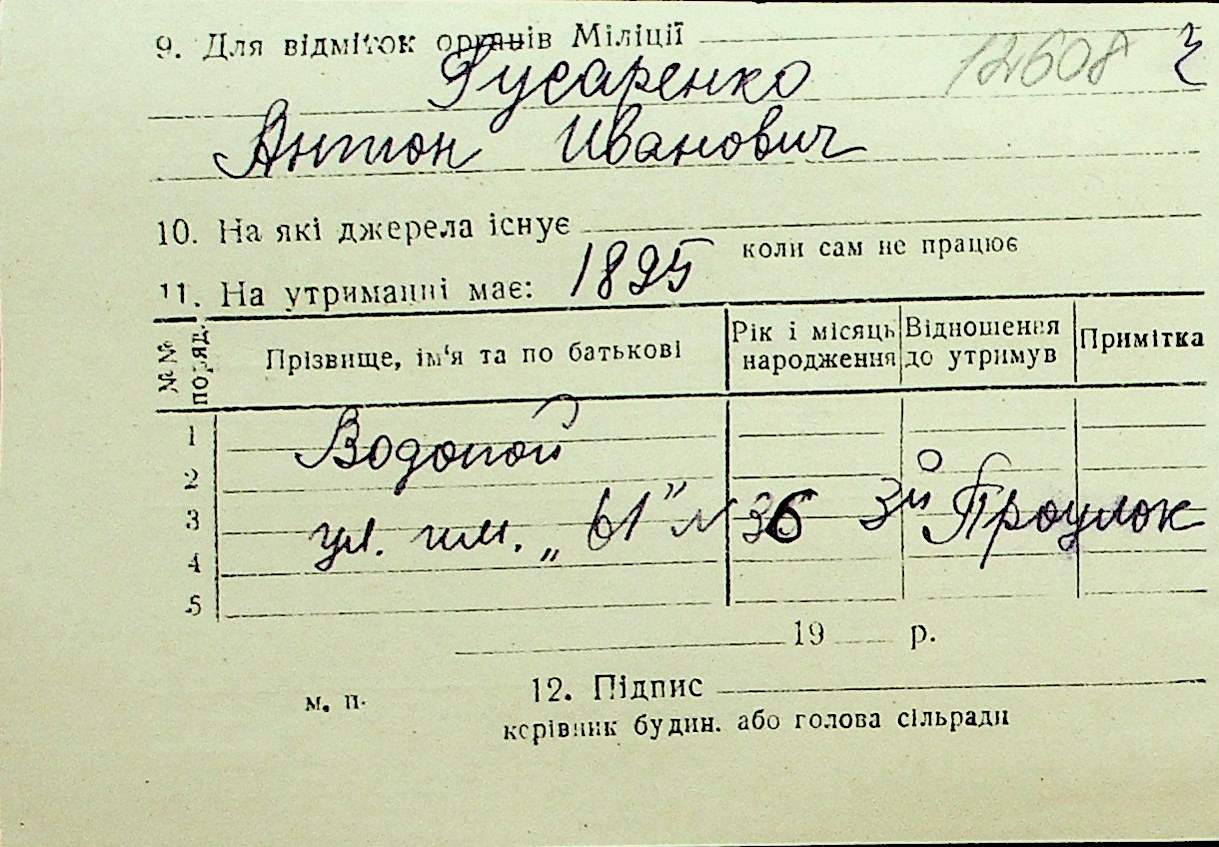 9. Для відміток органів Міліції
12608
Гусаренко
Антон Иванович
10. На які джерела існує
коли сам не працює
11. На утриманні має: 1895
№№ поряд.
Прізвище, ім'я та по батькові
Рік і місяць народження
Відношення до утримув
Примітка
1
Водопой
2
3
ул. им. „61" № 36 3й Проулок
4
5
19 р.
м. п.
12. Підпис
керівник будин. або голова сільради